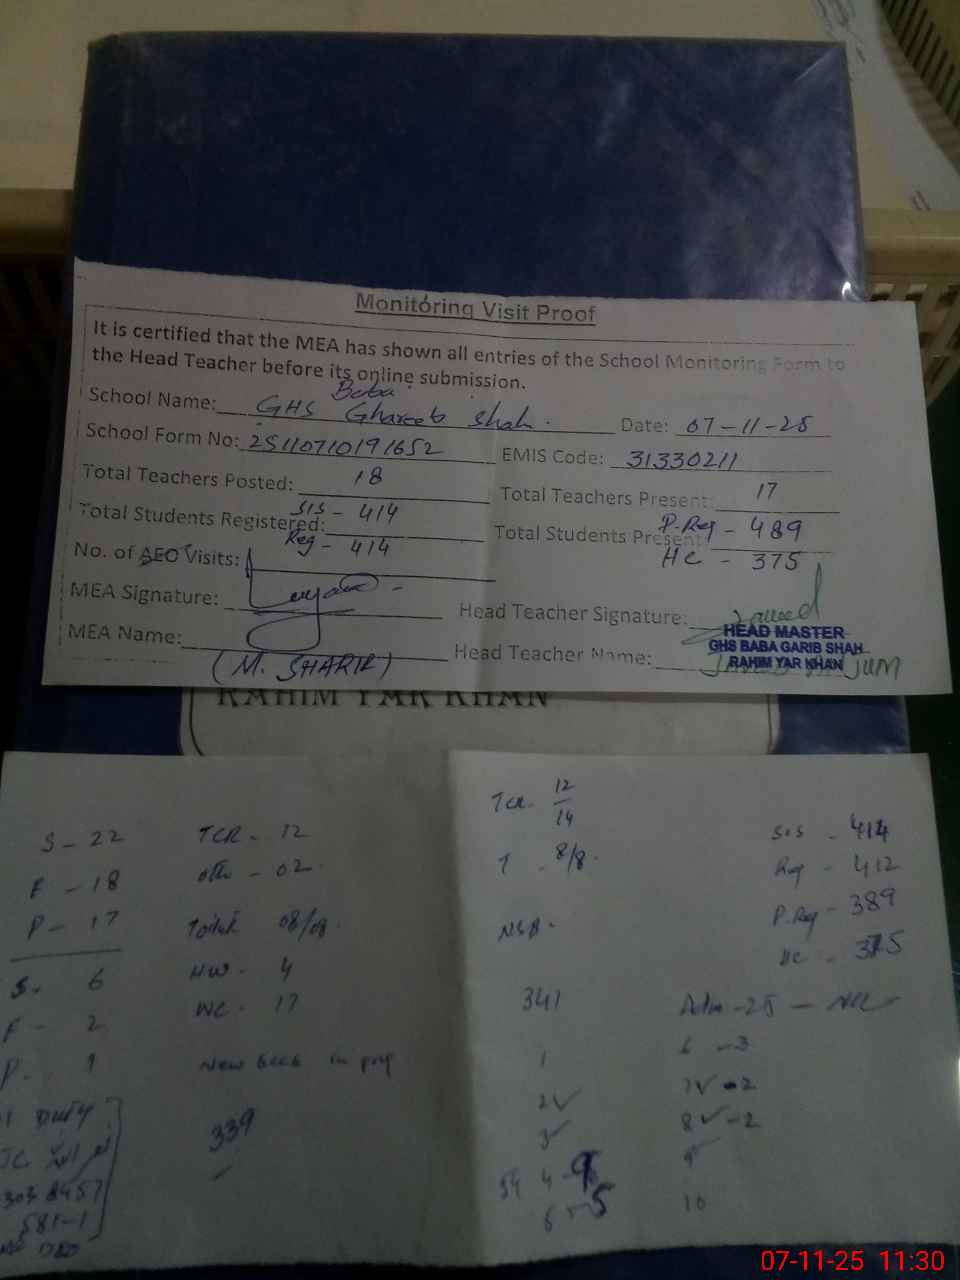 Monitoring Visit Proof
It is certified that the MEA has shown all entries of the School Monitoring Form to
the Head Teacher before its online submission.
Baba
School Name: GHS Ghareeb Shah. Date: 07-11-25
School Form No: 25110710191652 EMIS Code: 31330211
Total Teachers Posted: 18 Total Teachers Present: 17
Total Students Registered: SIS - 414 Total Students Present: P.Reg - 489
Reg - 414 HC - 375
No. of AEO Visits:
MEA Signature: Head Teacher Signature:
MEA Name: (M. SHARIF) Head Teacher Name:
HEAD MASTER
GHS BABA GARIB SHAH
RAHIM YAR KHAN
RAHIM YAR KHAN
S - 22 TCR - 12
F - 18 oth - 02
P - 17 Toilet 08/08
S. 6 HW - 4
F - 2 WC - 17
P. 1 New
Duty
339
TCR. 12/14
T - 8/8.
NSB.
341
1
2✓
3✓
54 4 - 9
5
SIS - 414
Reg - 412
P.Reg - 389
HC - 375
Adm - 25 -
6 - 3
7✓ - 2
8✓ - 2
9
10
07-11-25 11:30